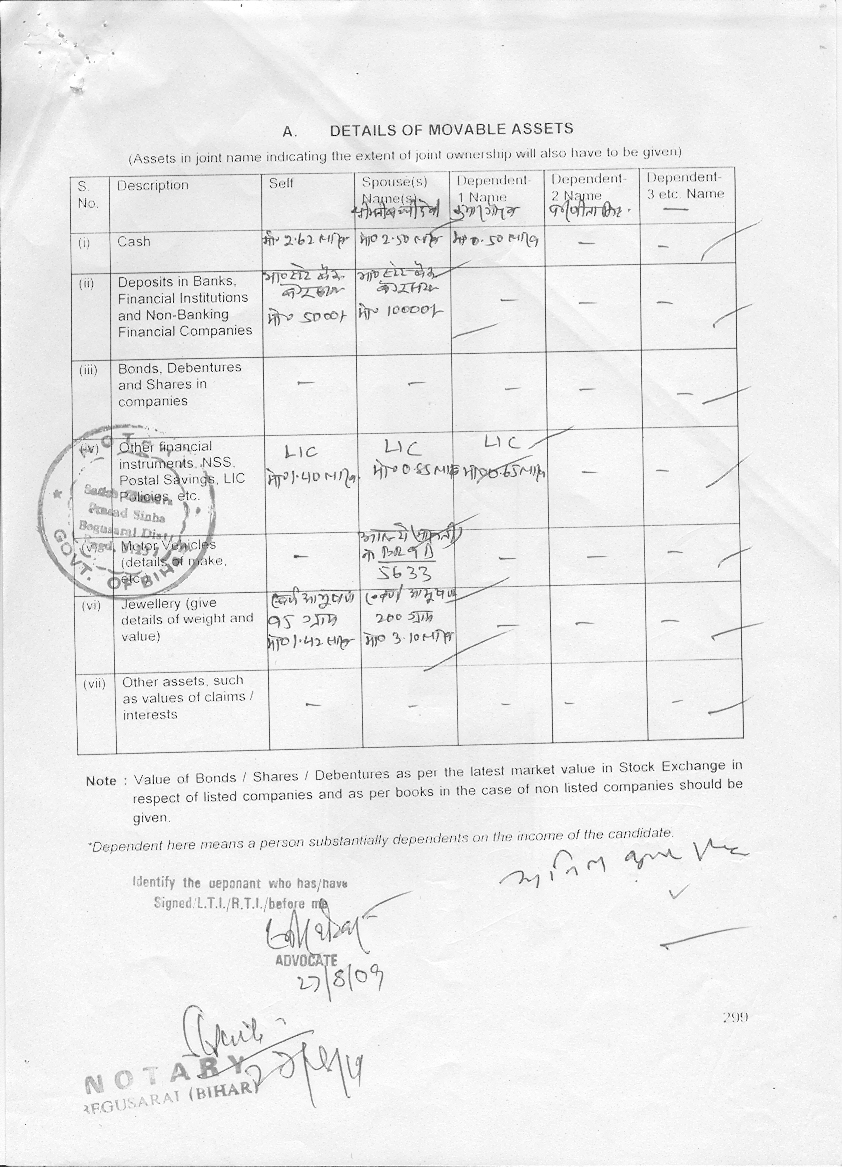 A. DETAILS OF MOVABLE ASSETS
(Assets in joint name indicating the extent of joint ownership will also have to be given)
S. No. Description Self Spouse(s) Name(s) Dependent-1 Name Dependent-2 Name Dependent-3 etc. Name
—
(i) Cash मो० 2.62 लाख मो० 2.50 लाख मो० 0.50 लाख — —
(ii) Deposits in Banks,
Financial Institutions
and Non-Banking
Financial Companies
मो० 5000/- मो० 10000/- — — —
(iii) Bonds, Debentures
and Shares in
companies
— — — — —
(iv) Other financial
instruments, NSS,
Postal Savings, LIC
Policies, etc.
LIC LIC LIC
मो० 1.40 लाख मो० 0.85 लाख मो० 0.65 लाख — —
(v) Motor Vehicles
(details of make,
etc.)
— 5633 — — —
(vi) Jewellery (give
details of weight and
value)
स्वर्ण आभूषण स्वर्ण आभूषण
95 ग्राम 200 ग्राम
मो० 1.42 लाख मो० 3.10 लाख — — —
(vii) Other assets, such
as values of claims /
interests
— — — — —
Note : Value of Bonds / Shares / Debentures as per the latest market value in Stock Exchange in
respect of listed companies and as per books in the case of non listed companies should be
given.
*Dependent here means a person substantially dependents on the income of the candidate.
Identify the deponant who has/have
Signed/L.T.I./R.T.I./before me
ADVOCATE
27/8/09
299
NOTARY
BEGUSARAI (BIHAR)
Prasad Sinha
Begusarai Dist.
GOVT. OF BIHAR